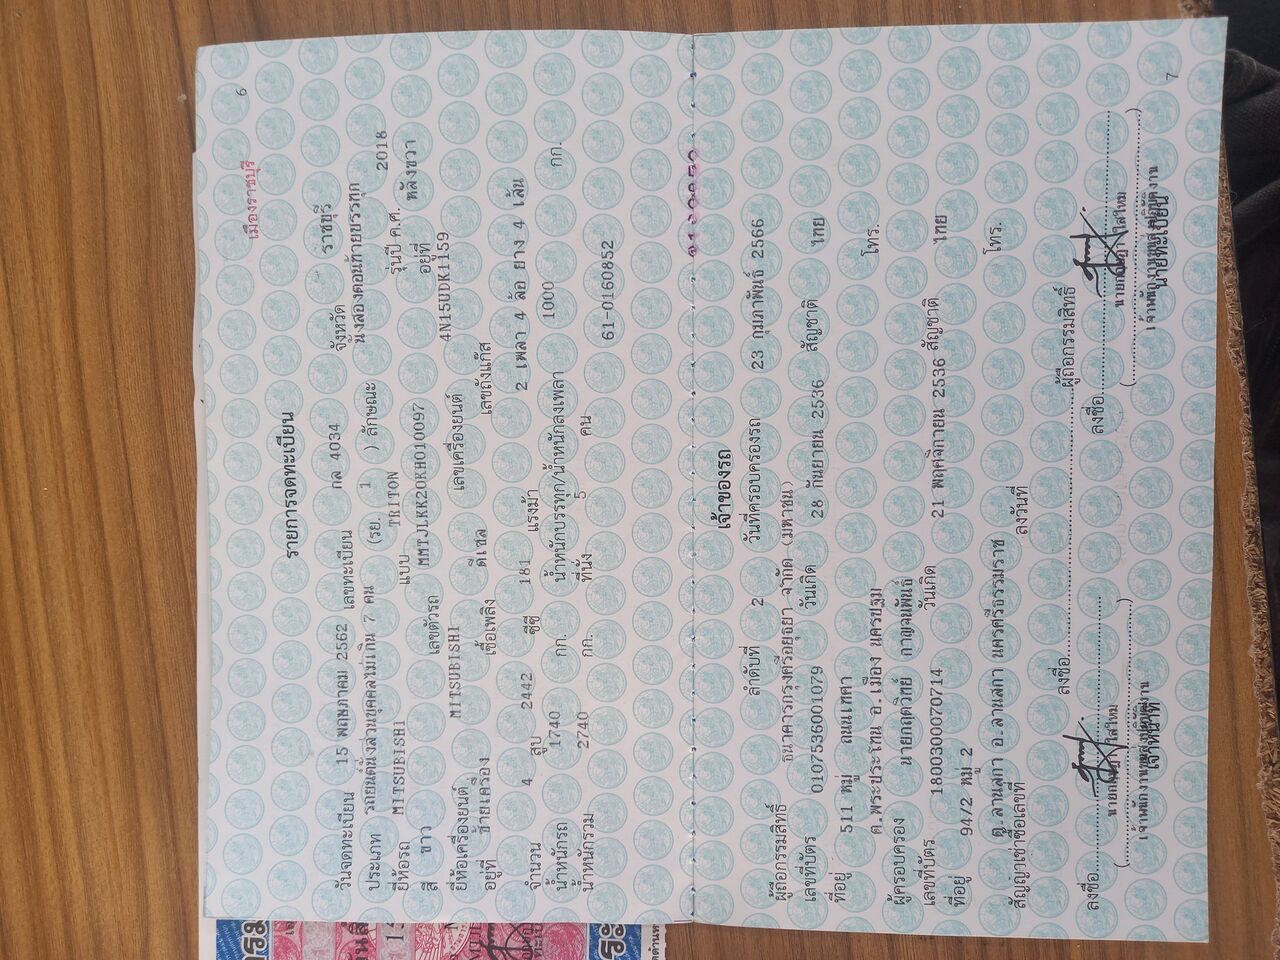 6
เมืองราชบุรี
รายการจดทะเบียน
วันจดทะเบียน 15 พฤษภาคม 2562 เลขทะเบียน กล 4034 จังหวัด ราชบุรี
ประเภท รถยนต์นั่งส่วนบุคคลไม่เกิน 7 คน (รย. 1 ) ลักษณะ นั่งสองตอนท้ายบรรทุก
ยี่ห้อรถ MITSUBISHI แบบ TRITON รุ่นปี ค.ศ. 2018
สี ขาว เลขตัวรถ MMTJLKK20KH010097 อยู่ที่ หลังขวา
ยี่ห้อเครื่องยนต์ MITSUBISHI เลขเครื่องยนต์ 4N15UDK1159
อยู่ที่ ซ้ายเครื่อง เชื้อเพลิง ดีเซล เลขถังแก๊ส
จำนวน 4 สูบ 2442 ซีซี 181 แรงม้า 2 เพลา 4 ล้อ ยาง 4 เส้น
น้ำหนักรถ 1740 กก. น้ำหนักบรรทุก/น้ำหนักลงเพลา 1000 กก.
น้ำหนักรวม 2740 กก. ที่นั่ง 5 คน 61-0160852
เจ้าของรถ
ลำดับที่ 2 วันที่ครอบครองรถ 23 กุมภาพันธ์ 2566
ผู้ถือกรรมสิทธิ์ ธนาคารกรุงศรีอยุธยา จำกัด (มหาชน)
เลขที่บัตร 0107536001079 วันเกิด 28 กันยายน 2536 สัญชาติ ไทย
ที่อยู่ 511 หมู่ ถนนเทศา โทร.
ต.พระประโทน อ.เมือง นครปฐม
ผู้ครอบครอง นายกฤติวิทย์ กาญจนพันธ์
เลขที่บัตร 1800300070714 วันเกิด 21 พฤศจิกายน 2536 สัญชาติ ไทย
ที่อยู่ 94/2 หมู่ 2 โทร.
ต.ลานสกา อ.ลานสกา นครศรีธรรมราช
สัญญาเช่าซื้อเลขที่ ลงวันที่
ลงชื่อ ผู้ถือกรรมสิทธิ์
ลงชื่อ ลงชื่อ
ใสใหม ใสใหม
เจ้าหน้าที่ นายทะเบียน
7